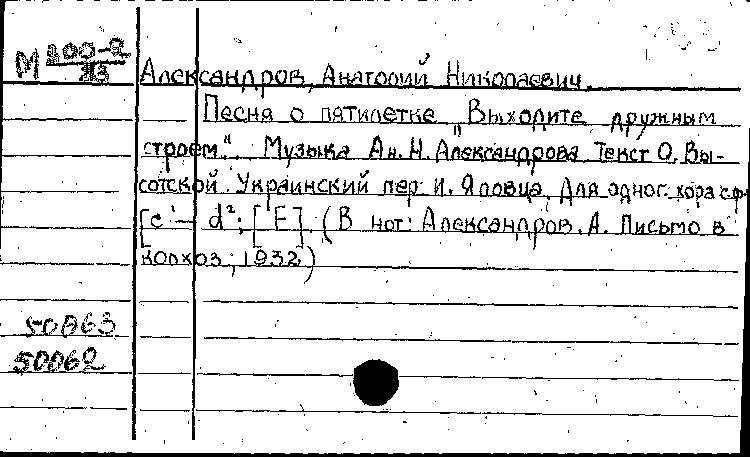 М 200-2
113
Александров, Анатолий Николаевич.
Песня о пятилетке "Выходите дружным
строем". Музыка Ан. Н. Александрова. Текст О. Вы-
сотской. Украинский пер. И. Яловца. Для одног. хора с ф-
[c¹ — d²; [E]. (В нот: Александров. А. Письмо в
колхоз, 1932)
50063
50062